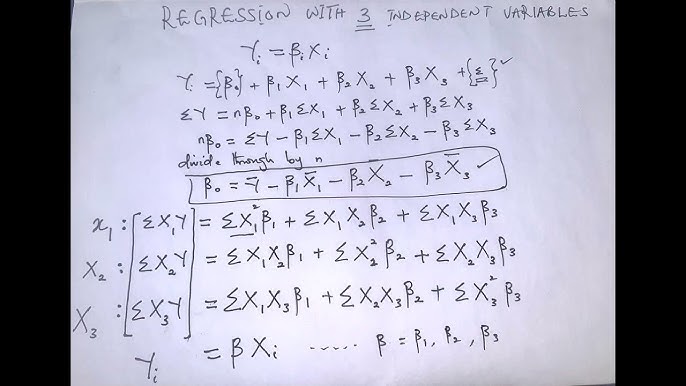 REGRESSION WITH 3 INDEPENDENT VARIABLES
Yᵢ = βᵢXᵢ
Yᵢ = {β₀} + β₁X₁ + β₂X₂ + β₃X₃ + {Σ} ✓
ΣY = nβ₀ + β₁ΣX₁ + β₂ΣX₂ + β₃ΣX₃
nβ₀ = ΣY − β₁ΣX₁ − β₂ΣX₂ − β₃ΣX₃
divide through by n
β₀ = Ȳ − β₁X̄₁ − β₂X̄₂ − β₃X̄₃ ✓
x₁ : [ΣX₁Y] = ΣX₁²β₁ + ΣX₁X₂β₂ + ΣX₁X₃β₃
X₂ : [ΣX₂Y] = ΣX₁X₂β₁ + ΣX₂²β₂ + ΣX₂X₃β₃
X₃ : [ΣX₃Y] = ΣX₁X₃β₁ + ΣX₂X₃β₂ + ΣX₃²β₃
Yᵢ = βXᵢ ..... β = β₁, β₂, β₃